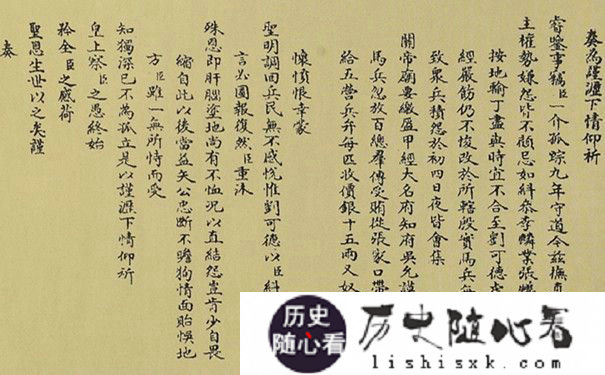 奏為謹瀝下情仰祈
睿鑒事竊臣一介孤踪九年守道今茲撫
主權勢嫌怨皆不顧忌如糾叅李麟業張
按地輸丁盡與時宜不合至劉可德虐
經嚴飭仍不悛改於所轄殷實馬兵每
致衆兵積怨於初四日夜皆會集
關帝廟要繳盔甲經大名府知府吳允謹
馬兵忽放百總羣傳受賄從張家口帶
給五營兵弁每匹收價銀十五兩又奴
懷憤恨幸蒙
聖明調回兵民無不感悅惟劉可德以臣糾
言必圖報復然臣重沐
殊恩即肝腦塗地尚有不恤況以直結怨豈肯少自畏
縮自此以後當益矢公忠斷不瞻狥情面貽悞地
方臣雖一無所恃而受
知獨深已不為孤立是以謹瀝下情仰祈
皇上察臣之愚終始
矜全臣之感荷
聖恩生世以之矣謹
奏
历史
随心看
历史随心看
lishisxk.com